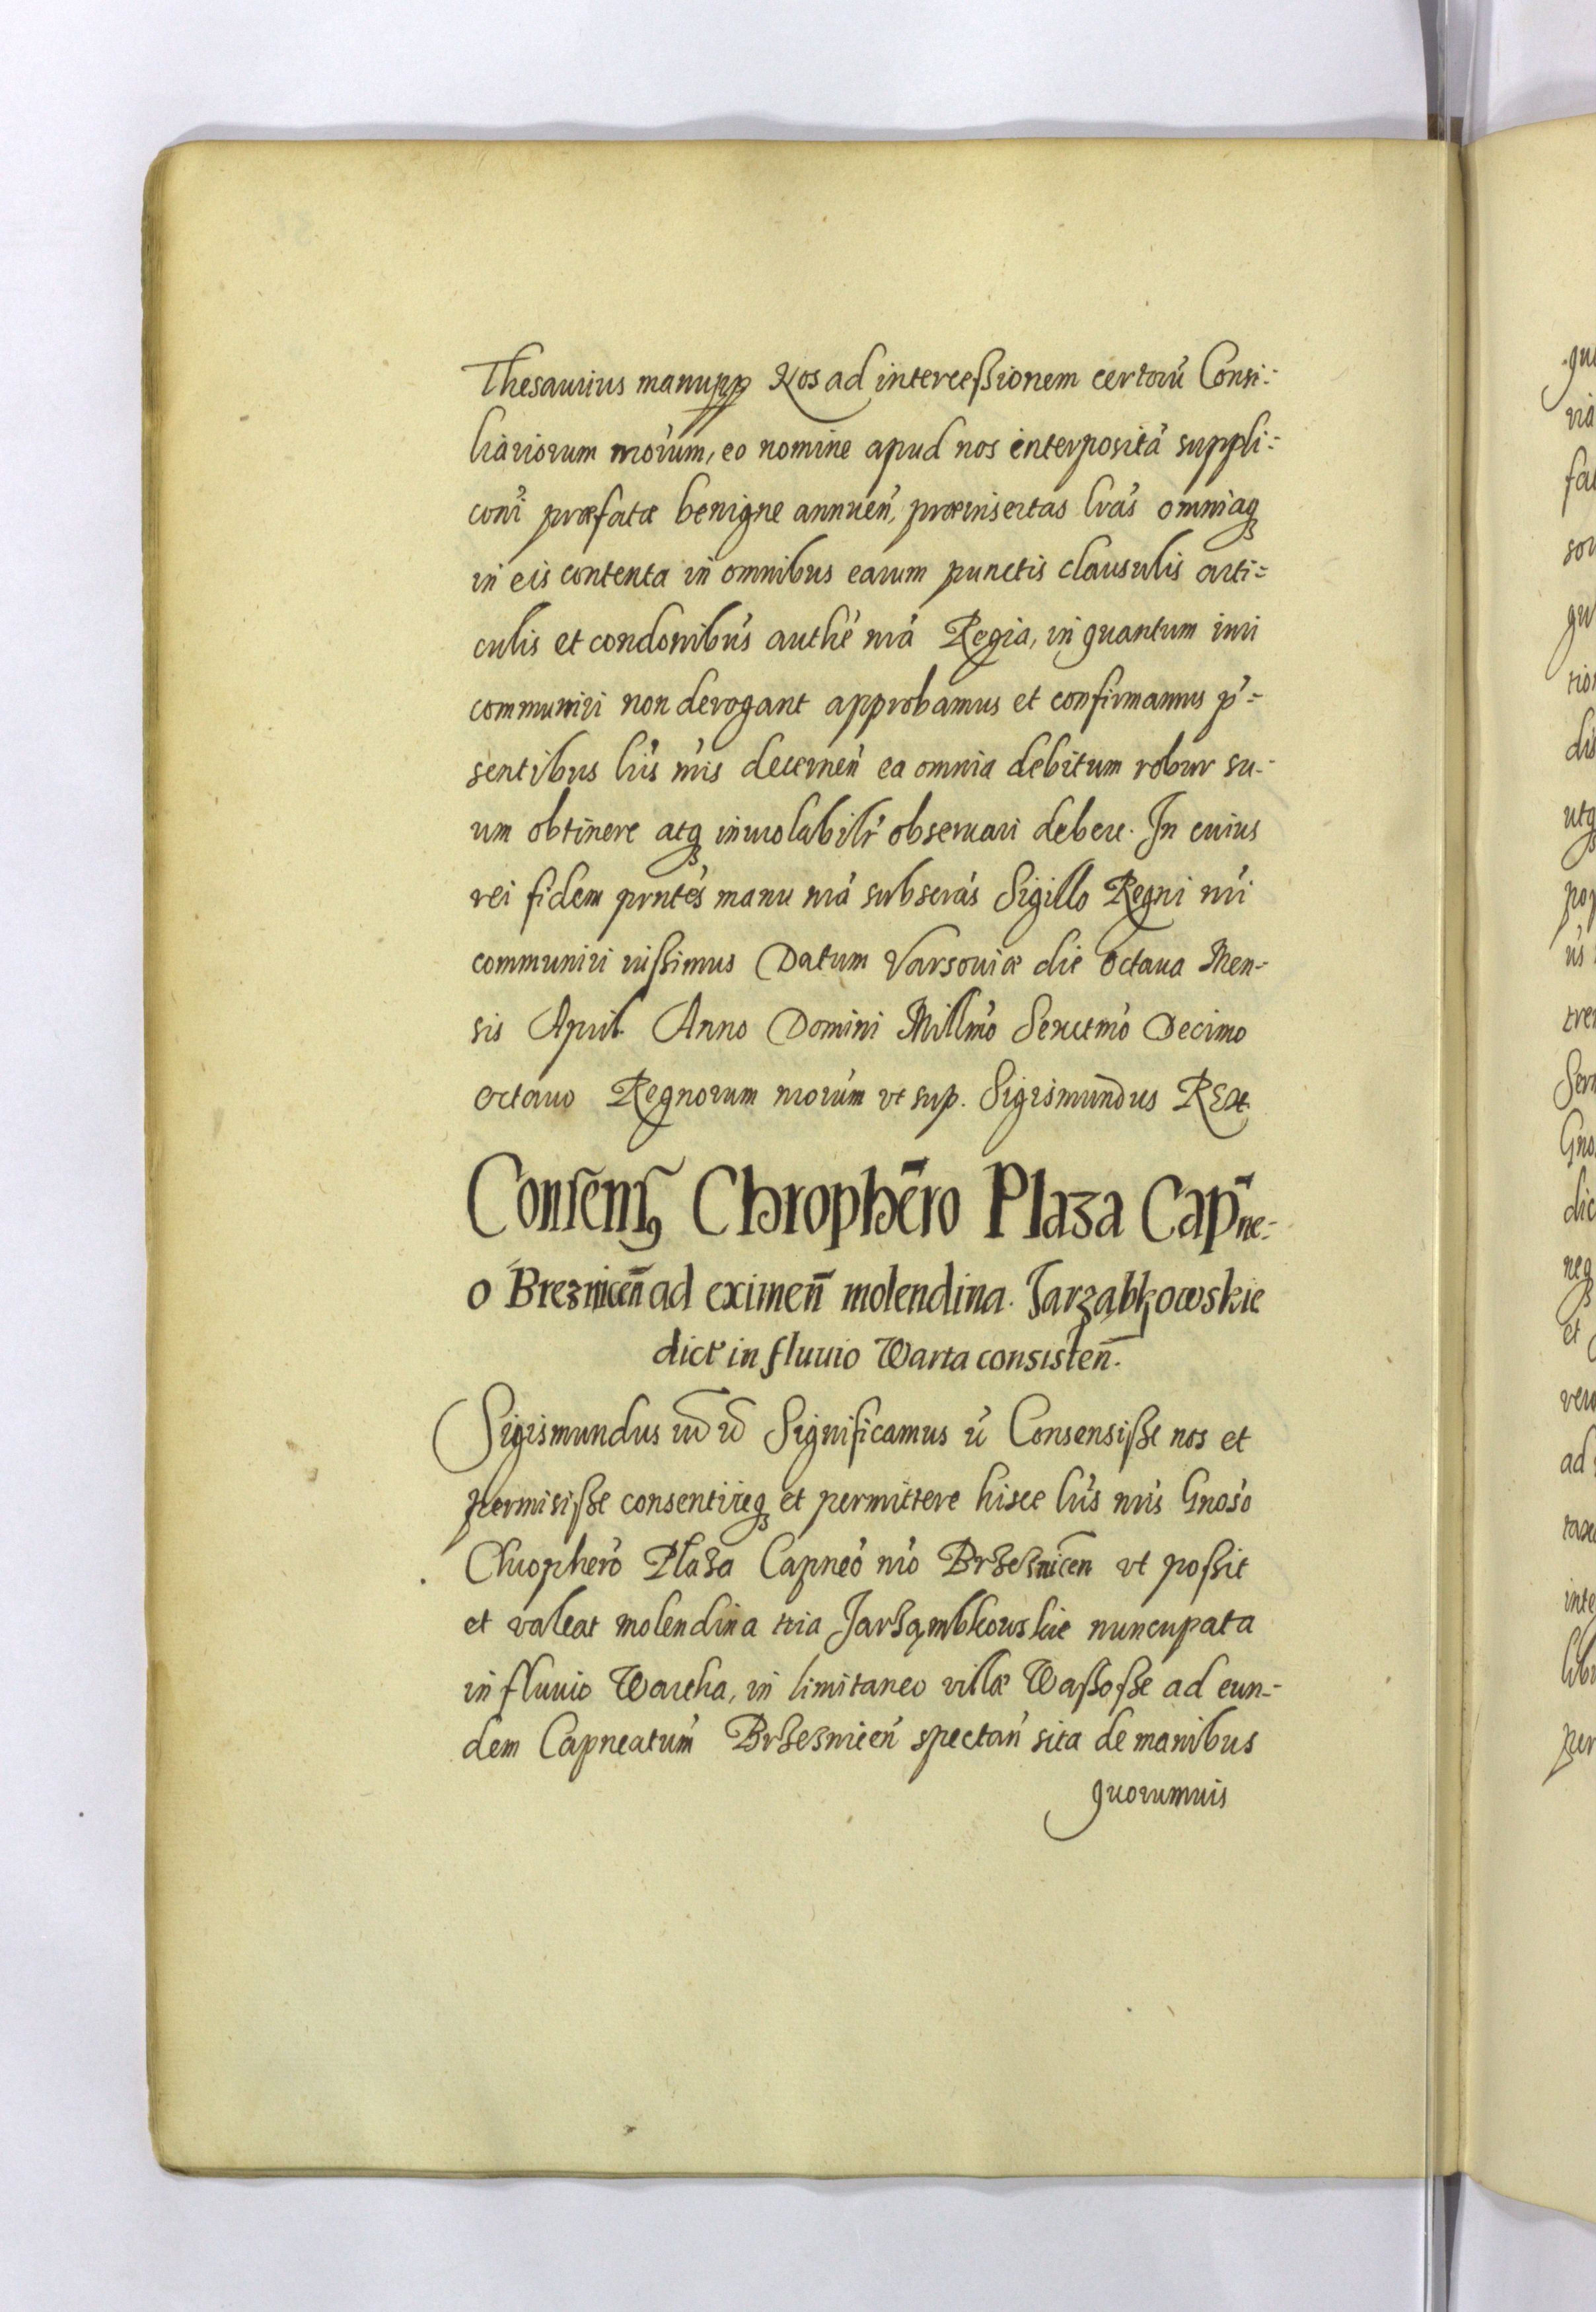 Thesaurius manupp Nos ad intercessionem certorú Consi:
liariorum nrorúm, eo nomine apud nos interpositá suppli:
coní præfatæ benigne annueń, præinsertas lrás omniaq
in eis contenta in omnibus earum punctis clausulis arti=
culis et condonibús authé nrá Regia, in quantum iuri
communi non derogant approbamus et confirmamus p=
sentibus lrís nris decerneń ea omnia debitum robur su-
um obtinere atq inuiolabilr obseruari debere. In cuius
rei fidem prntés manu nrá subscrás Sigillo Regni nri
communiri iussimus Datum Varsouiæ die Octaua Men-
sis April Anno Domini Millmó Sexctmó Decimo
Octauo Regnorum nrorúm vt sup. Sigismundus REX
Consens Chrophēro Plaza Cap̄ne-
o Brezniceñ ad eximeñ molendina Jarząbkowskie
dict in fluuio Warta consisteñ.
Sigismundus Significamus ú Consensisse nos et
permisisse consentireq et permittere hisce lrís nris Gnosó
Chropheró Plaza Capneó nró Brzeznicen vt possit
et valeat molendina tria Jarząmbkowskie nuncupata
in fluuio Wartha, in limitaneo villæ Wassosse ad eun-
dem Capneatuḿ Brzeznicen spectań sita de manibus
quorumuis